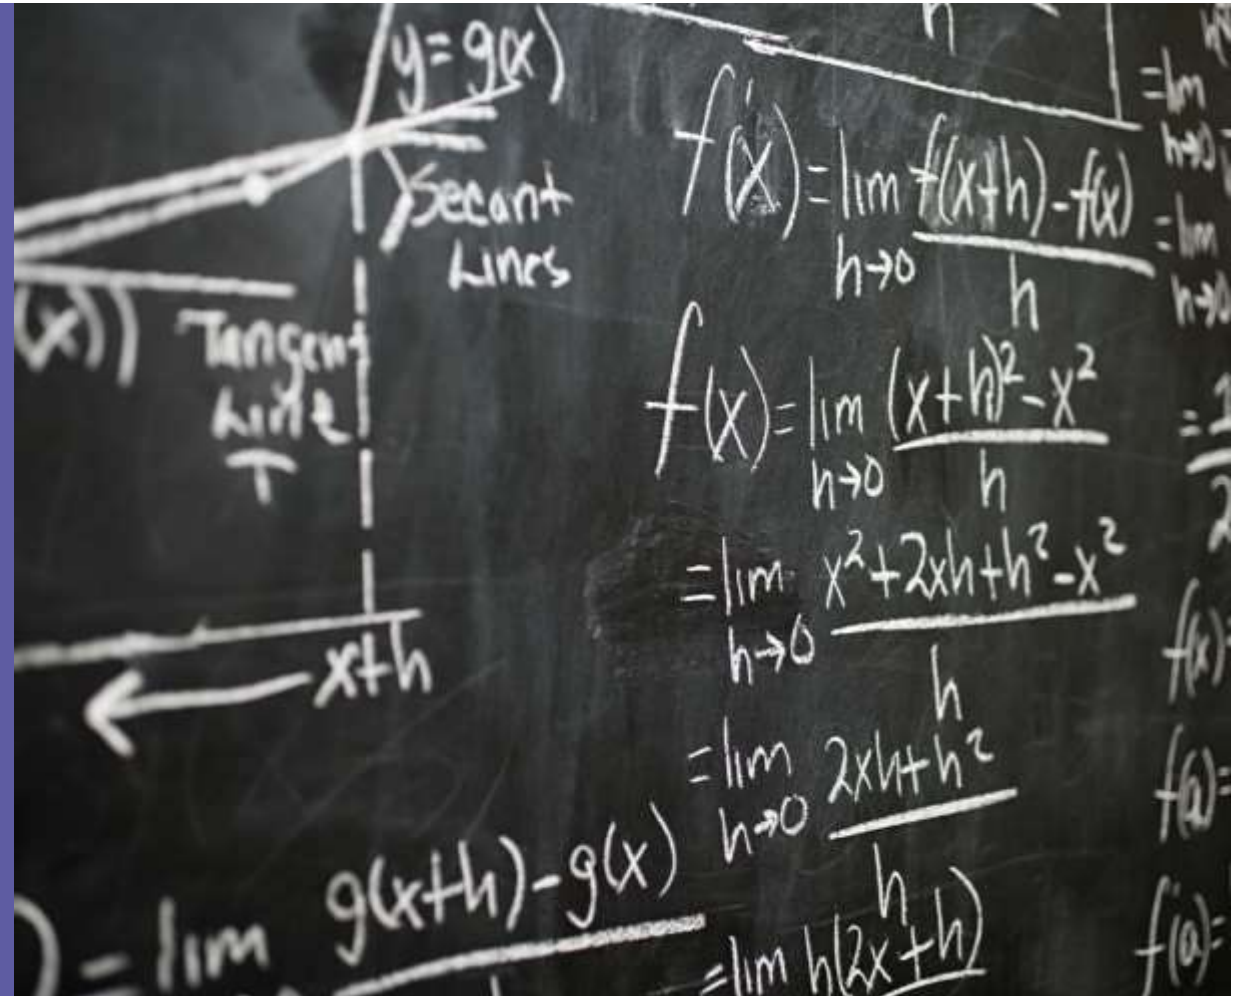 y=g(x)
Secant
Lines
(x))
Tangent
Line
T
x+h
)=lim g(x+h)-g(x)
h
f'(x)=lim f(x+h)-f(x)
h→0 h
f'(x)=lim (x+h)²-x²
h→0 h
=lim x²+2xh+h²-x²
h→0 h
=lim 2xh+h²
h→0 h
=lim h(2x+h)
=lim
h→0
=lim
h→0
=1
2
f(x)=
f(a)=
f'(a)=